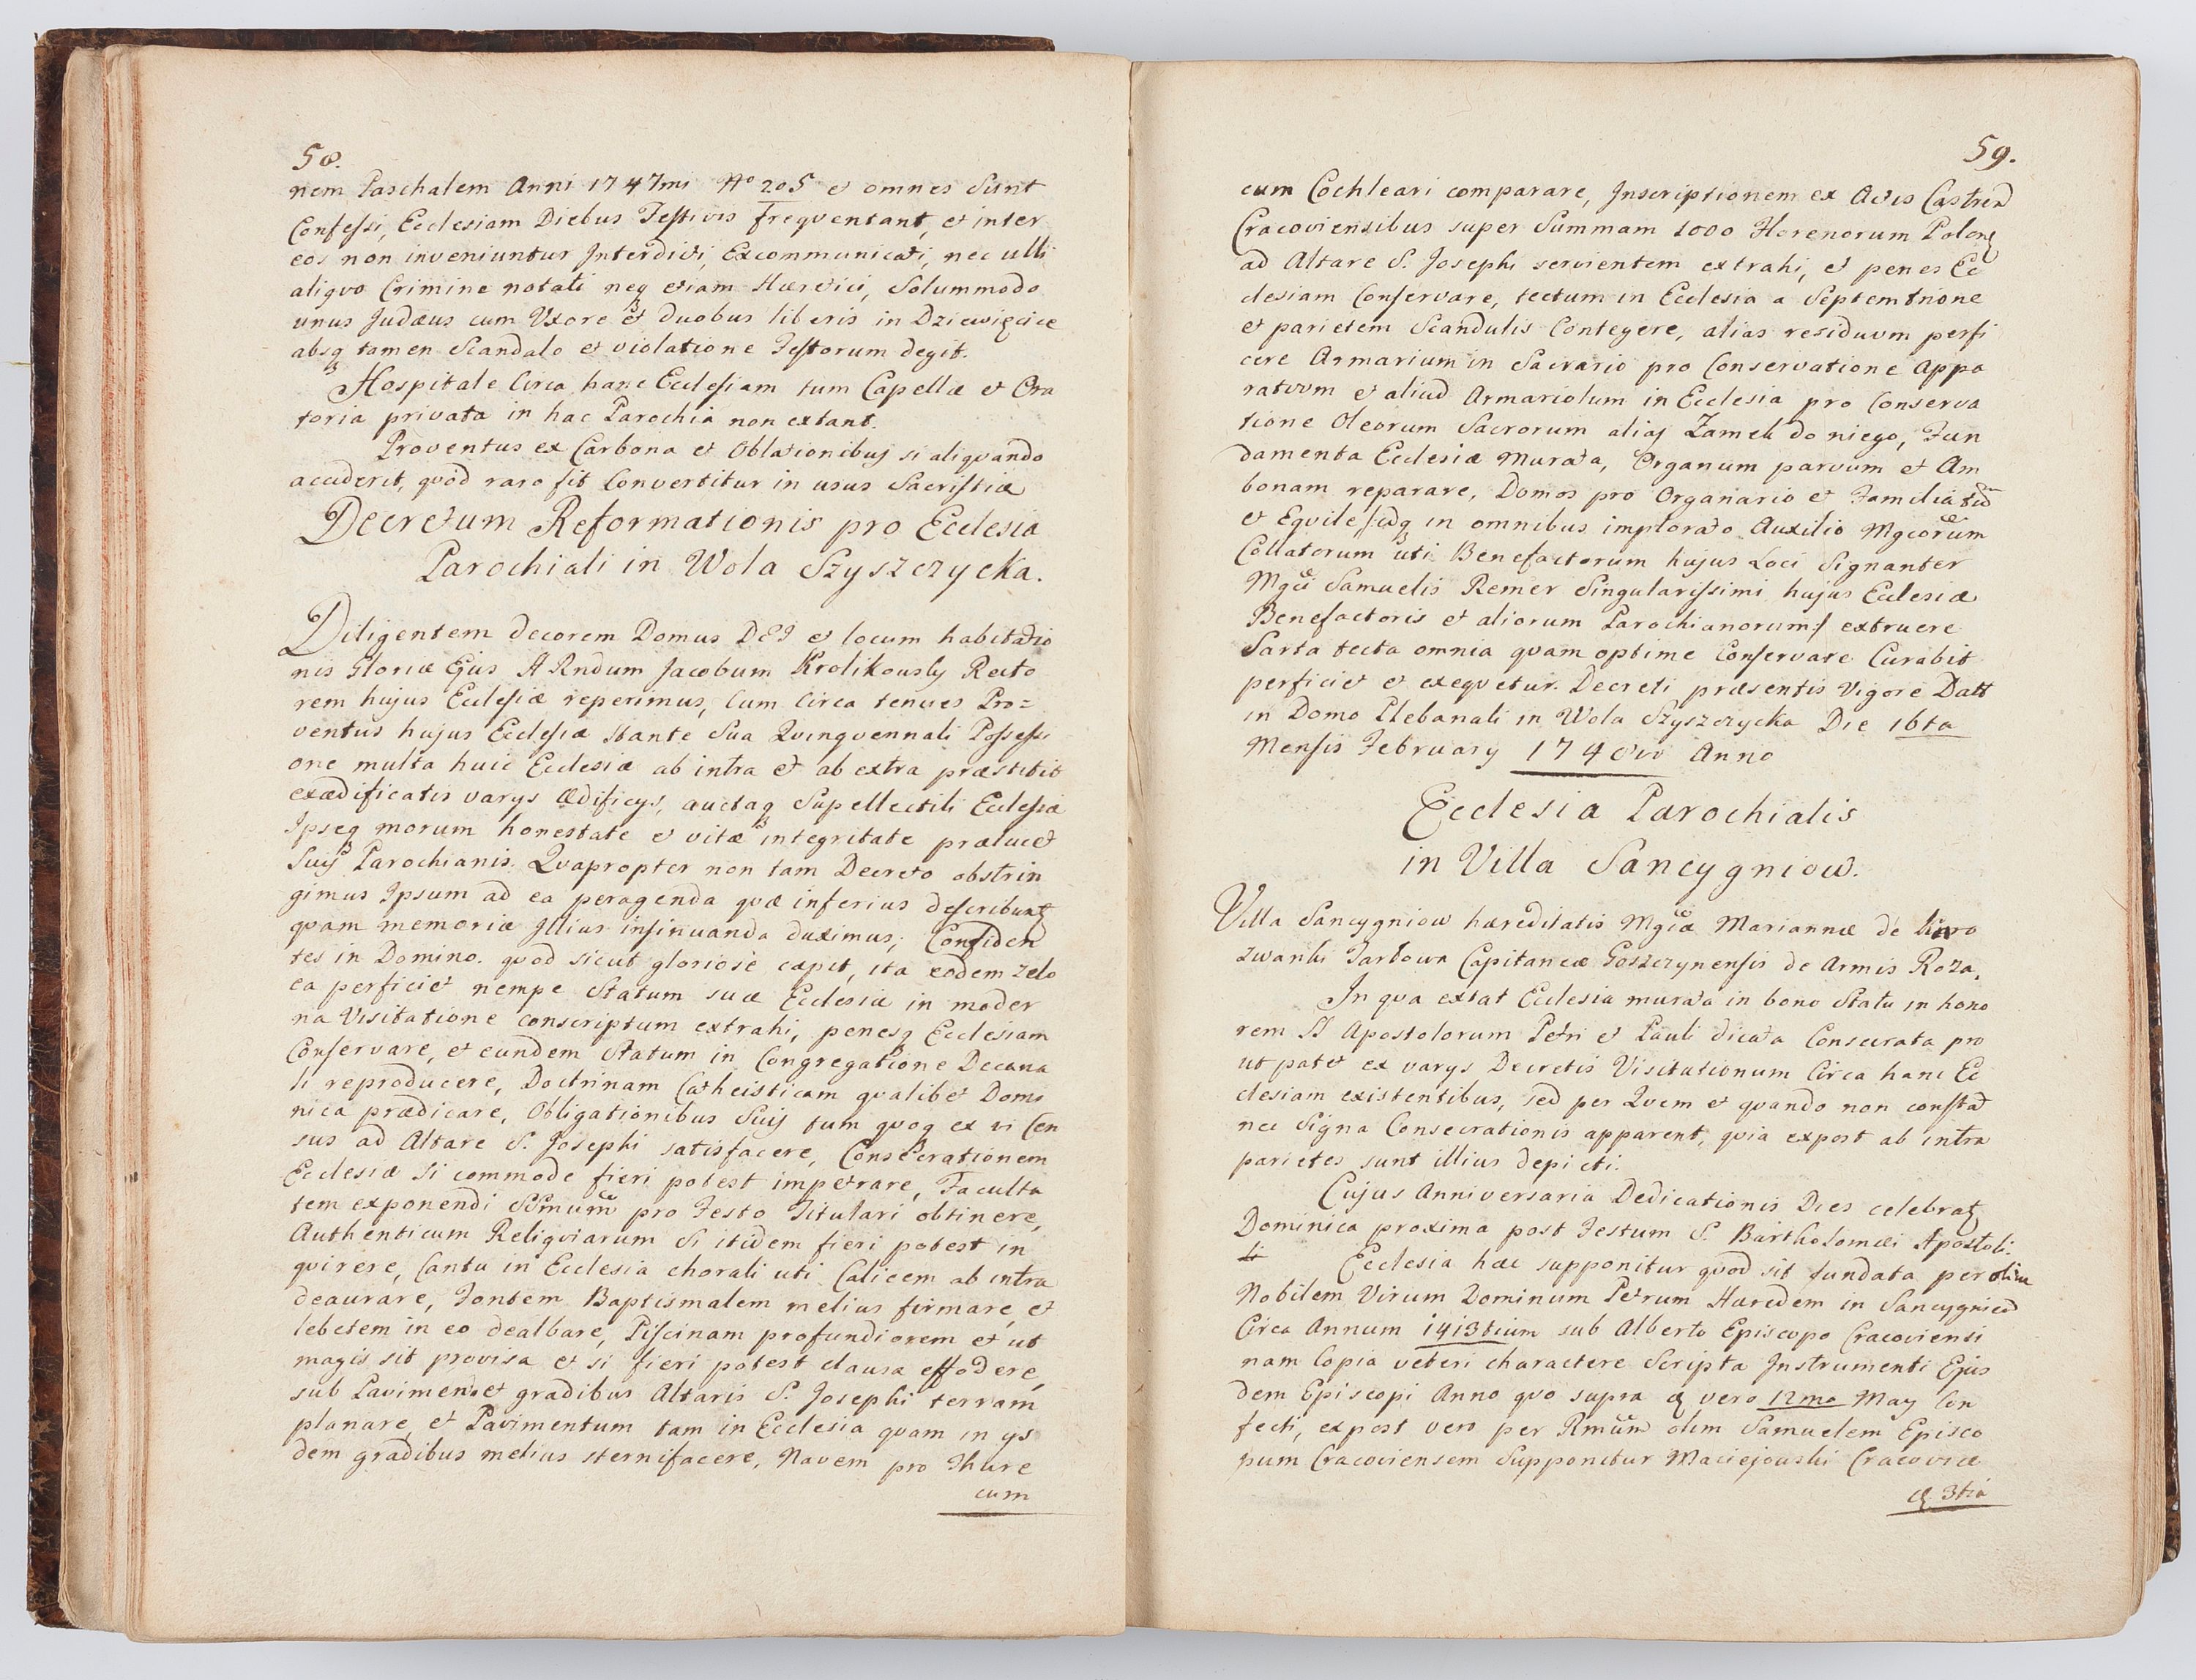 58.
nem Paschalem Anni 1747mi No 205 et omnes Sunt
Confessi, Ecclesiam Diebus Festivis frequentant, et inter
eos non inveniuntur Interdicti, Excommunicati, nec ulli
aliquo Crimine notati neq etiam Hæretici, Solummodo
unus Judæus cum Uxore et duobus liberis in Dziewięcice
absq tamen Scandalo et violatione Festorum degit.
Hospitale Circa hanc Ecclesiam tum Capellæ et Ora
toria privata in hac Parochia non extant.
Proventus ex Carbona et Oblationibus si aliquando
acciderit, quod raro fit Convertitur in usus Sacristiæ
Decretum Reformationis pro Ecclesia
Parochiali in Wola Szyszczycka.
Diligentem decorem Domus DEI et locum habitatio
nis Gloriæ Ejus A Rndum Jacobum Krolikowsky Recto
rem hujus Ecclesiæ reperimus, Cum Circa tenues Pro=
ventus hujus Ecclesiæ Stante Sua Quinquennali Possessi
one multa huic Ecclesiæ ab intra et ab extra præstitit
exædificatis varys Ædificys, auctaq Supellectili Ecclesiæ
Ipseq morum honestate et vitæ integritate prælucet
Suis Parochianis. Quapropter non tam Decreto obstrin
gimus Ipsum ad ea peragenda quæ inferius describunt
quam memoriæ Illius insinuanda duximus; Confiden
tes in Domino. quod sicut gloriosè cæpit, ita eodem zelo
ea perficiet nempe Statum suæ Ecclesiæ in moder
na Visitatione conscriptum extrahi, penesq Ecclesiam
Conservare, et eundem Statum in Congregatione Decana
li reproducere, Doctrinam Catheisticam qualibet Domi
nica prædicare, Obligationibus Suis tum quoq ex vi Cen
sus ad Altare S. Josephi satisfacere, Consecrationem
Ecclesiæ Si commode fieri potest impetrare, Faculta
tem exponendi SSmum pro Festo Titulari obtinere,
Authenticum Reliquiarum Si itidem fieri potest in
quirere, Cantu in Ecclesia chorali uti Calicem ab intra
deaurare, Fontem Baptismalem melius firmare, et
lebetem in eo dealbare, Piscinam profundiorem et ut
magis sit provisa et si fieri potest clausa effodere,
sub Pavimen et gradibus Altaris S. Josephi terram
planare, et Pavimentum tam in Ecclesia quam in ys
dem gradibus melius sternifacere, Navem pro Thure
cum
59.
cum Cochleari comparare, Inscriptionem ex Actis Castren
Cracoviensibus super Summam 1000 Florenorum Polon
ad Altare S. Josephi servientem extrahi, et penes Ec
clesiam Conservare, tectum in Ecclesia a Septemtrione
et parietem Scandulis Contegere, alias residuum perfi
cere Armarium in Sacrario pro Conservatione Appa
ratuum et aliud Armariolum in Ecclesia pro Conserva
tione Oleorum Sacrorum alias Zamek do niego, Fun
damenta Ecclesiæ Murata, Organum parvum et Am
bonam reparare, Domos pro Organario et Familia
et Equile, idq in omnibus implorato Auxilio Mgcorum
Collatorum uti Benefactorum hujus Loci Signanter
Mgci Samuelis Remer Singularissimi hujus Ecclesiæ
Benefactoris et aliorum Parochianorum:/ extruere
Sarta tecta omnia quam optime Conservare Curabit
perficiet et exequetur. Decreti præsentis Vigore Datt
in Domo Plebanali in Wola Szyszczycka Die 16ta
Mensis February 1748vo Anno
Ecclesia Parochialis
in Villa Sancygniow.
Villa Sancygniow hæreditatis Mgcæ Mariannæ de
Tarłowa Capitaneæ Goszczynensis de Armis Roza.
In qua extat Ecclesia murata in bono Statu in hono
rem SS Apostolorum Petri et Pauli dicata Consecrata pro
ut patet ex varys Decretis Visitationum Circa hanc Ec
clesiam existentibus, sed per Quem et quando non constat
nec Signa Consecrationis apparent, quia expost ab intra
parietes sunt illius depicti.
Cujus Anniversaria Dedicationis Dies celebrat
Dominica proxima post Festum S. Bartholomæi Apostoli.
Ecclesia hæc supponitur quod sit fundata per olim
Nobilem Virum Dominum Petrum Hæredem in Sancygniow
Circa Annum 1413tium sub Alberto Episcopo Cracoviensi
nam Copia veteri charactere Scripta Instrumenti Ejus
dem Episcopi Anno quo supra d vero 12ma May Con
fecti, expost vero per Rmum olim Samuelem Episco
pum Cracoviensem Supponitur Maciejowski Cracoviæ
d. 3tia